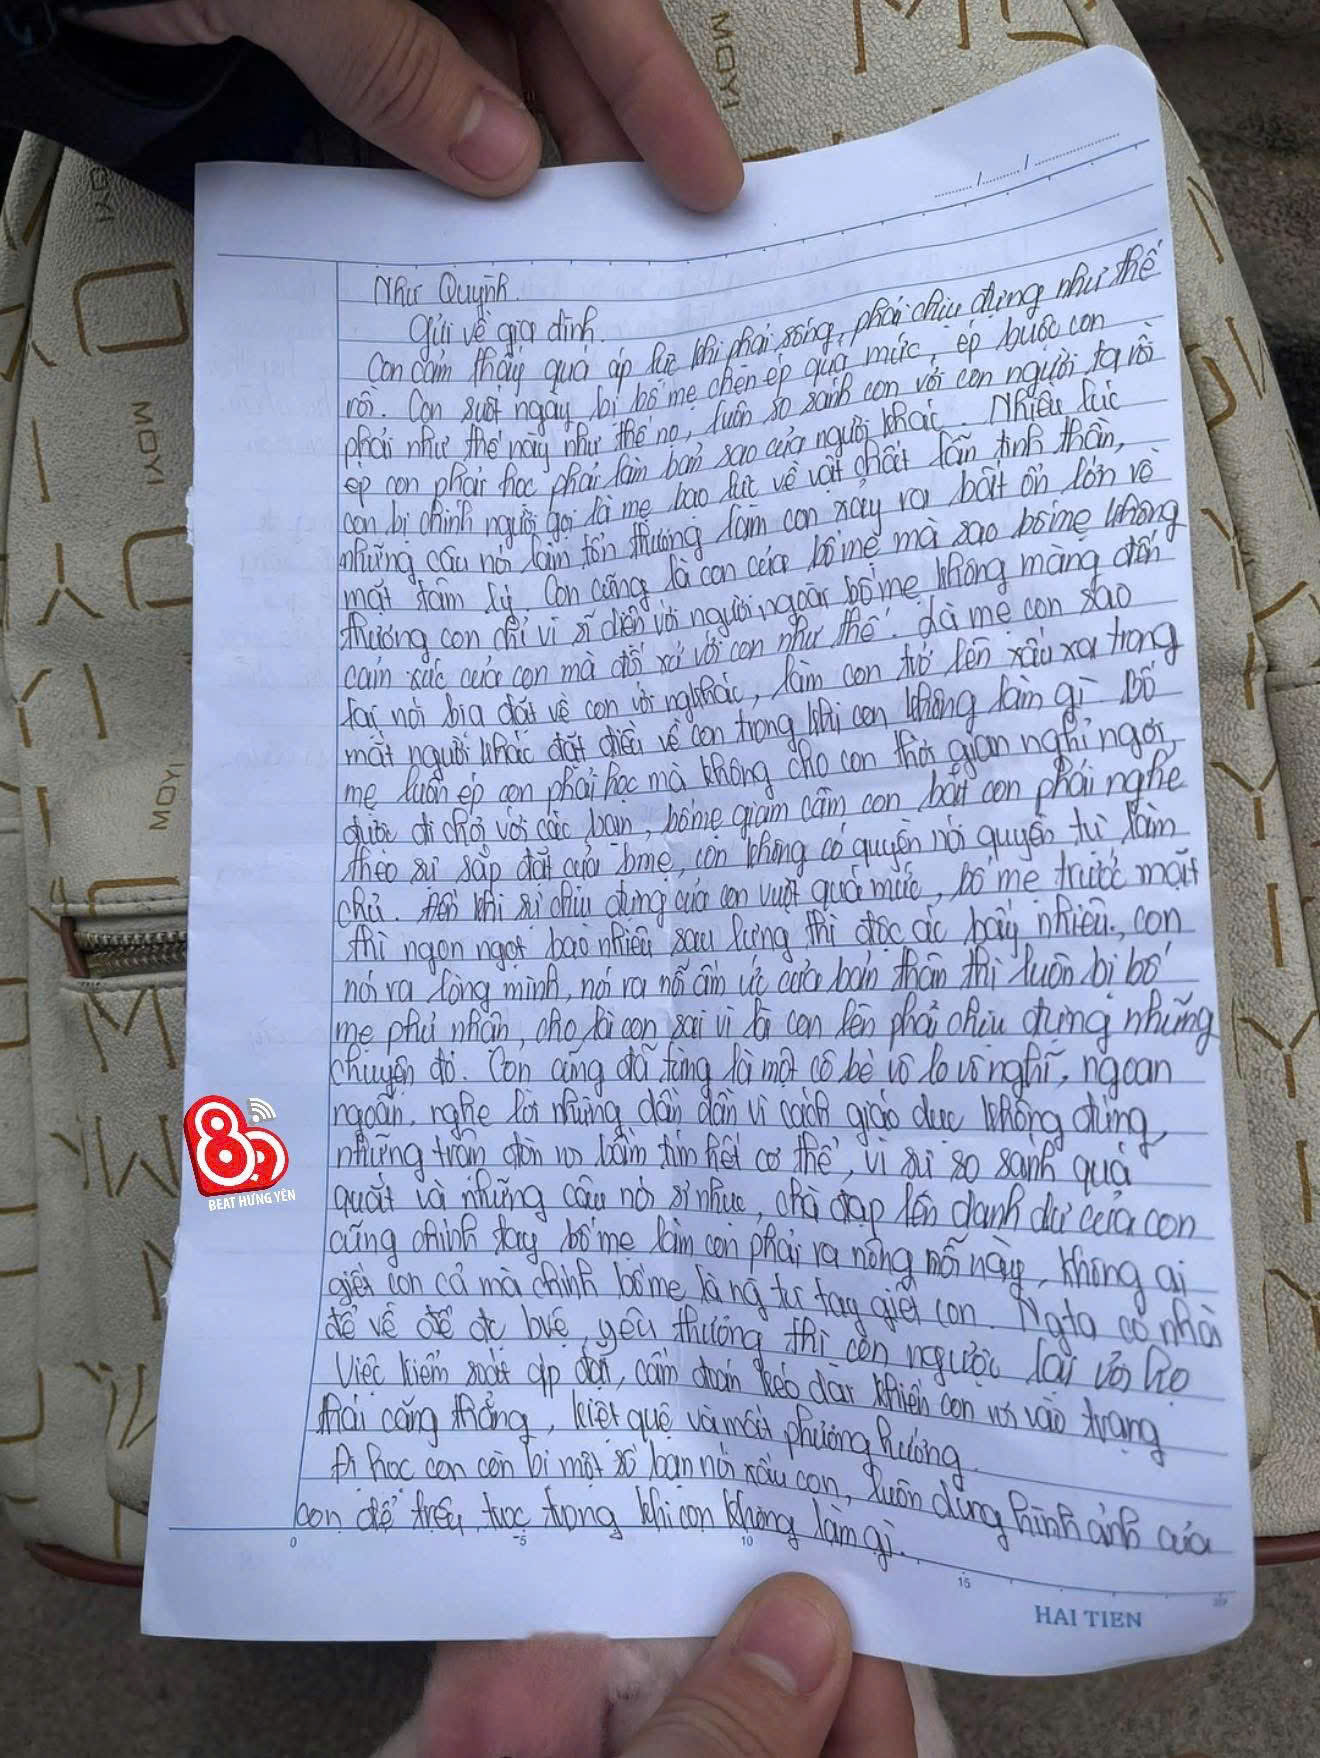 Như Quỳnh.
Gửi về gia đình.
Con cảm thấy quá áp lực khi phải sống, phải chịu đựng như thế
rồi. Con suốt ngày bị bố mẹ chèn ép quá mức, ép buộc con
phải như thế này như thế nọ, luôn so sánh con với con người ta rồi
ép con phải học phải làm bản sao của người khác. Nhiều lúc
con bị chính người gọi là mẹ bạo lực về vật chất lẫn tinh thần,
những câu nói làm tổn thương làm con xảy ra bất ổn lớn về
mặt tâm lý. Con cũng là con của bố mẹ mà sao bố mẹ không
thương con chỉ vì sĩ diện với người ngoài bố mẹ không màng đến
cảm xúc của con mà đối xử với con như thế. Là mẹ con sao
lại nói bịa đặt về con với ngkhác, làm con trở lên xấu xa trong
mắt người khác đặt điều về con trong khi con không làm gì. Bố
mẹ luôn ép con phải học mà không cho con thời gian nghỉ ngơi
được đi chơi với các bạn, bố mẹ giam cầm con bắt con phải nghe
theo sự sắp đặt của bmẹ, con không có quyền nói quyền tự làm
chủ. Đến khi sự chịu đựng của con vượt quá mức, bố mẹ trước mặt
thì ngon ngọt bao nhiêu sau lưng thì độc ác bấy nhiêu, con
nói ra lòng mình, nói ra nỗi ấm ức của bản thân thì luôn bị bố
mẹ phủ nhận, cho là con sai vì là con lên phải chịu đựng những
chuyện đó. Con cũng đã từng là một cô bé vô lo vô nghĩ, ngoan
ngoãn, nghe lời nhưng dần dần vì cách giáo dục không đúng,
những trận đòn roi bầm tím hết cơ thể, vì sự so sánh quá
quắt và những câu nói sỉ nhục, chà đạp lên danh dự của con
cũng chính tay bố mẹ làm con phải ra nông nỗi này, không ai
giết con cả mà chính bố mẹ là ng tự tay giết con. Ngta có nhà
để về để đc bvệ, yêu thương thì con ngược lại với họ
Việc kiểm soát áp đặt, cấm đoán kéo dài khiến con rơi vào trạng
thái căng thẳng, kiệt quệ và mất phương hướng.
Đi học con còn bị một số bạn nói xấu con, luôn dùng hình ảnh của
con để trêu tức trong khi con không làm gì.
0 5 10 15
HAI TIEN
BEAT HƯNG YÊN
MOYI
MOYI
MOYI
MOYI